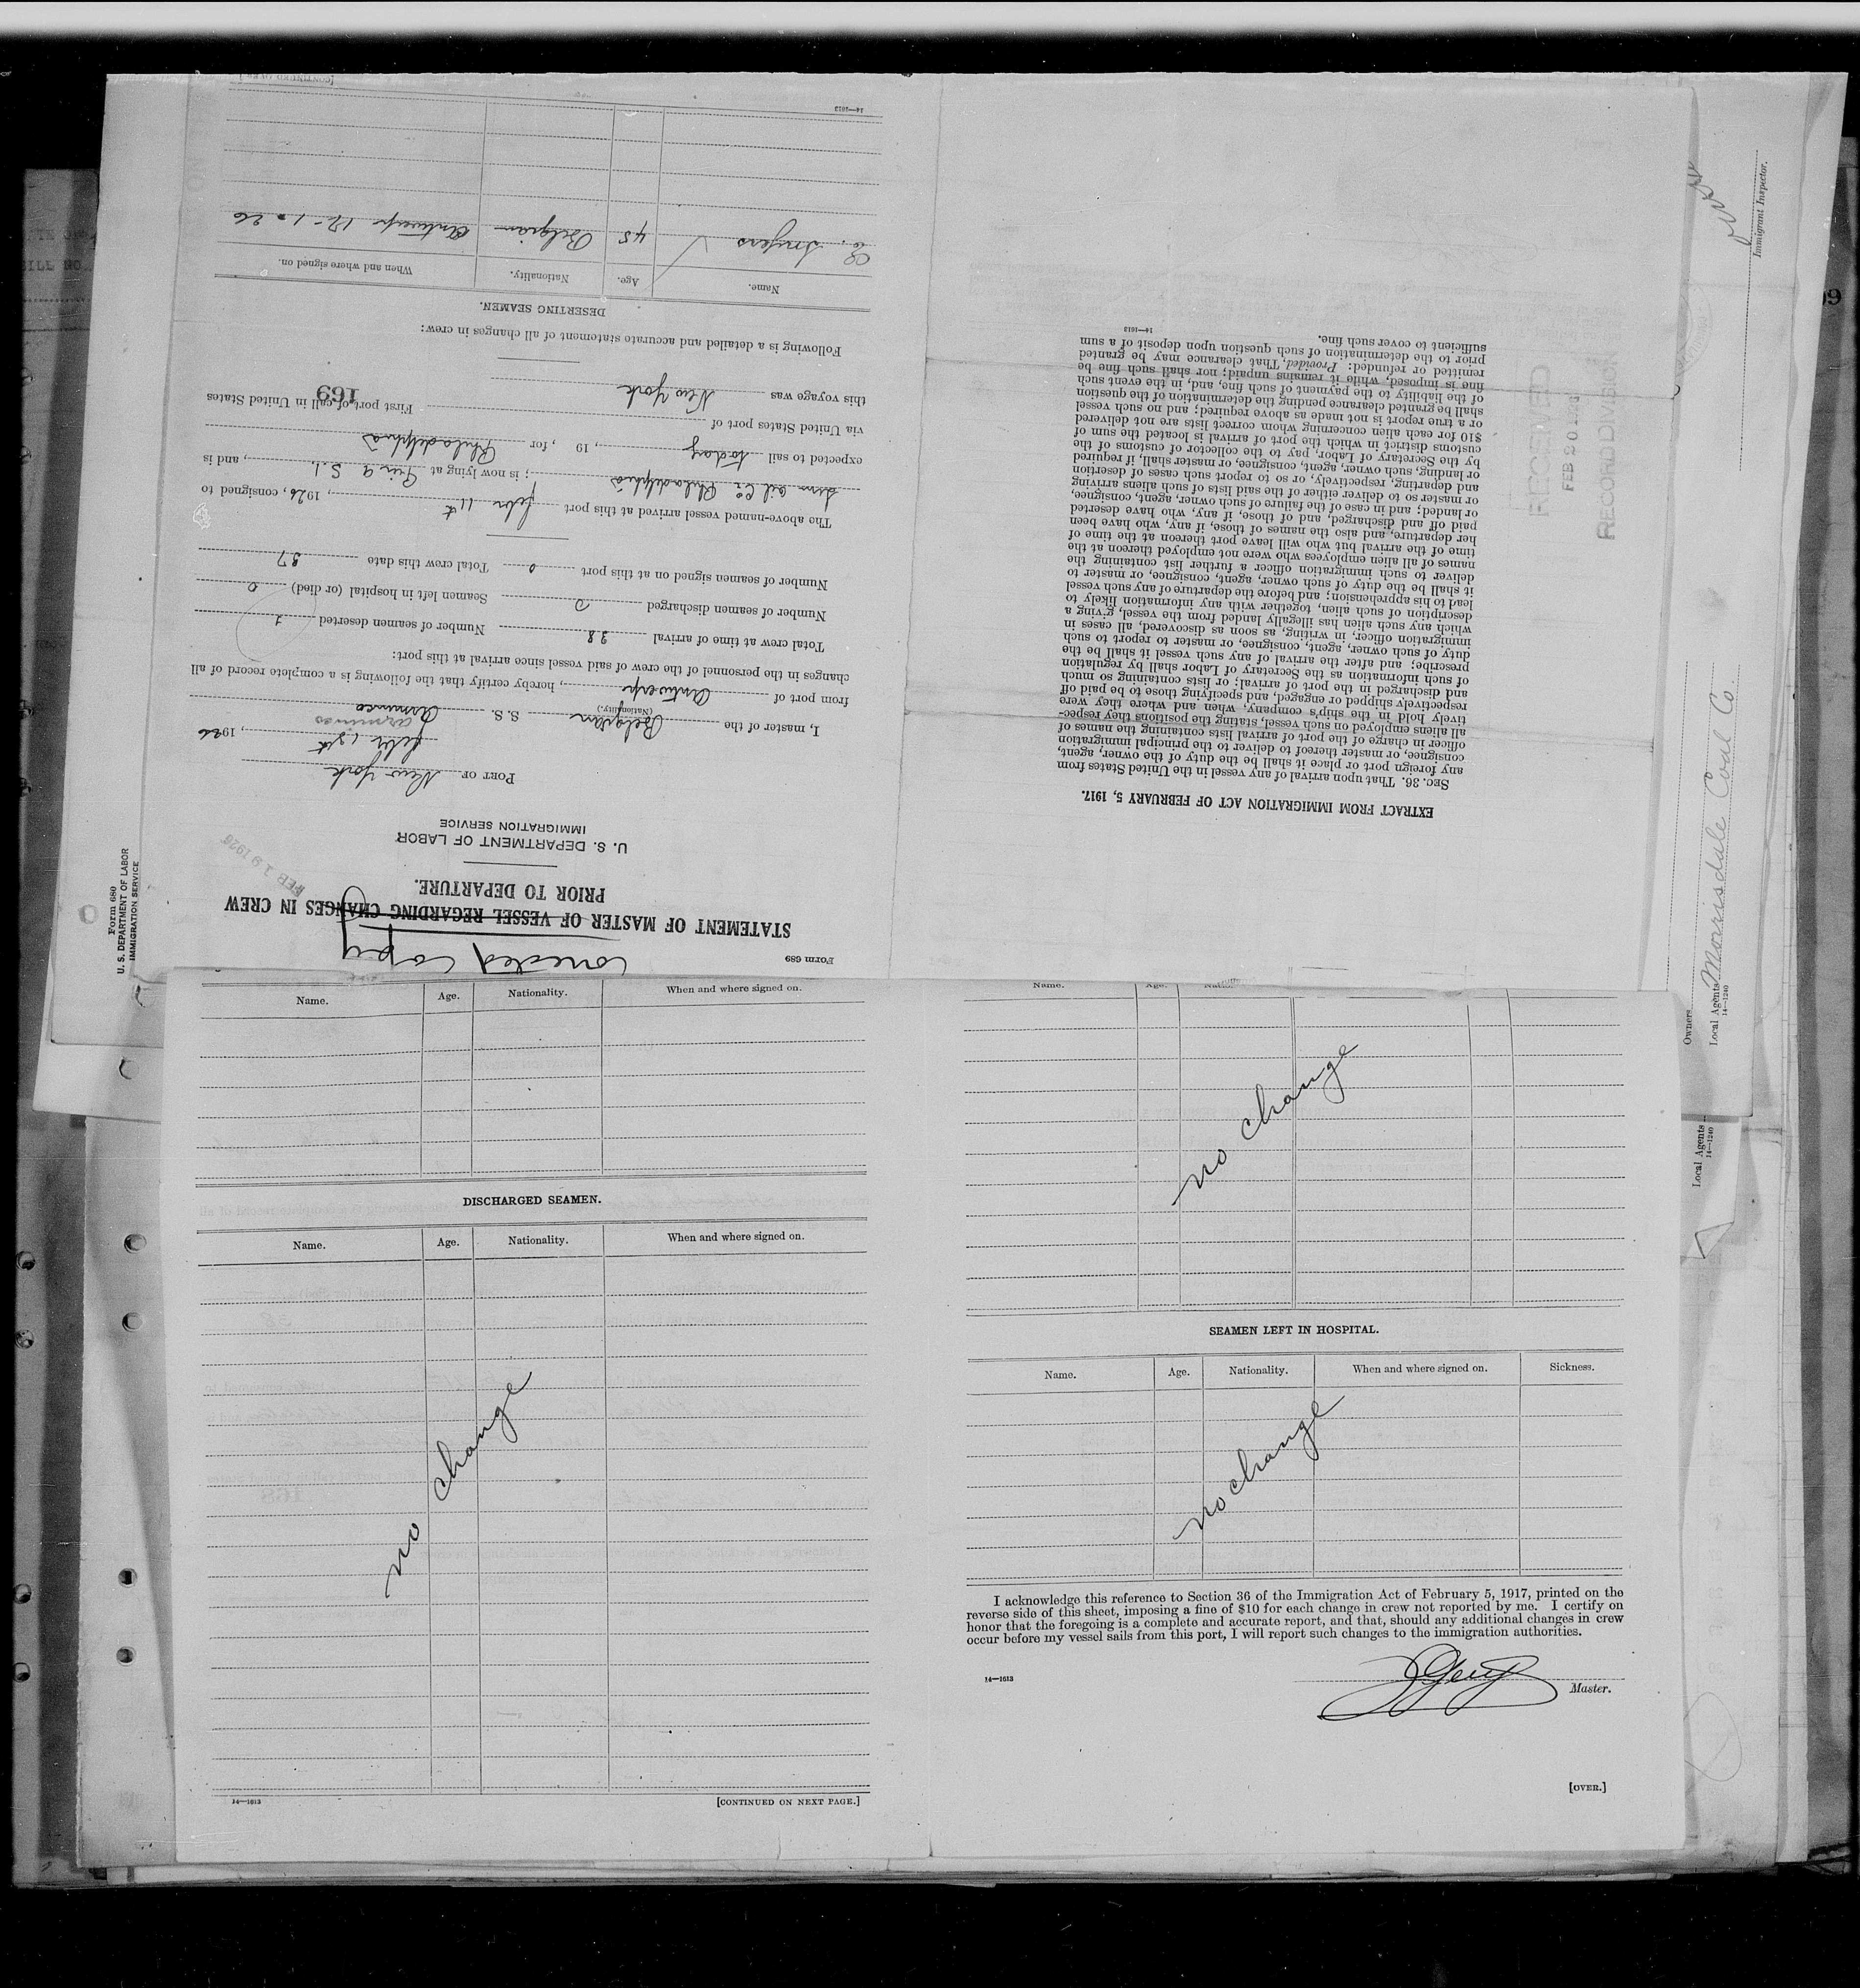 Form 689
Corrected Copy
STATEMENT OF MASTER OF VESSEL REGARDING CHANGES IN CREW
PRIOR TO DEPARTURE.
FEB 19 1926
U. S. DEPARTMENT OF LABOR
IMMIGRATION SERVICE
PORT OF New York
, 1926
I, master of the Belgian S. S. Arminco
(Nationality.)
from port of Antwerp, hereby certify that the following is a complete record of all
changes in the personnel of the crew of said vessel since arrival at this port:
Total crew at time of arrival 38 Number of seamen deserted 1
Number of seamen discharged 0 Seamen left in hospital (or died) 0
Number of seamen signed on at this port 0 Total crew this date 37
The above-named vessel arrived at this port, 1926, consigned to
Oil Co Philadelphia; is now lying at S.I., and is
expected to sail today, 19 , for Philadelphia
via United States port of First port of call in United States
this voyage was New York
169
Following is a detailed and accurate statement of all changes in crew:
DESERTING SEAMEN.
Name. Age. Nationality. When and where signed on.
45 Belgian Antwerp 1-26
14—1613
[CONTINUED OVER.]
EXTRACT FROM IMMIGRATION ACT OF FEBRUARY 5, 1917.
SEC. 36. That upon arrival of any vessel in the United States from
any foreign port or place it shall be the duty of the owner, agent,
consignee, or master thereof to deliver to the principal immigration
officer in charge of the port of arrival lists containing the names of
all aliens employed on such vessel, stating the positions they respec-
tively hold in the ship's company, when and where they were
respectively shipped or engaged, and specifying those to be paid off
and discharged in the port of arrival; or lists containing so much
of such information as the Secretary of Labor shall by regulation
prescribe; and after the arrival of any such vessel it shall be the
duty of such owner, agent, consignee, or master to report to such
immigration officer, in writing, as soon as discovered, all cases in
which any such alien has illegally landed from the vessel, giving a
description of such alien, together with any information likely to
lead to his apprehension; and before the departure of any such vessel
it shall be the duty of such owner, agent, consignee, or master to
deliver to such immigration officer a further list containing the
names of all alien employees who were not employed thereon at the
time of the arrival but who will leave port thereon at the time of
her departure, and also the names of those, if any, who have been
paid off and discharged, and of those, if any, who have deserted
or landed; and in case of the failure of such owner, agent, consignee,
or master so to deliver either of the said lists of such aliens arriving
and departing, respectively, or so to report such cases of desertion
or landing, such owner, agent, consignee, or master shall, if required
by the Secretary of Labor, pay to the collector of customs of the
customs district in which the port of arrival is located the sum of
$10 for each alien concerning whom correct lists are not delivered
or a true report is not made as above required; and no such vessel
shall be granted clearance pending the determination of the question
of the liability to the payment of such fine, and, in the event such
fine is imposed, while it remains unpaid; nor shall such fine be
remitted or refunded: Provided, That clearance may be granted
prior to the determination of such question upon deposit of a sum
sufficient to cover such fine.
14—1613
RECEIVED
FEB 20 1926
RECORD DIVISION
Form 680
U. S. DEPARTMENT OF LABOR
IMMIGRATION SERVICE
Immigrant Inspector.
Owners
Local Agents Morrisdale Coal Co.
14—1240
Local Agents
14—1240
Name. Age. Nationality. When and where signed on.
DISCHARGED SEAMEN.
Name. Age. Nationality. When and where signed on.
no change
14—1613
[CONTINUED ON NEXT PAGE.]
no change
SEAMEN LEFT IN HOSPITAL.
Name. Age. Nationality. When and where signed on. Sickness.
no change
I acknowledge this reference to Section 36 of the Immigration Act of February 5, 1917, printed on the
reverse side of this sheet, imposing a fine of $10 for each change in crew not reported by me. I certify on
honor that the foregoing is a complete and accurate report, and that, should any additional changes in crew
occur before my vessel sails from this port, I will report such changes to the immigration authorities.
14—1613
Master.
[OVER.]